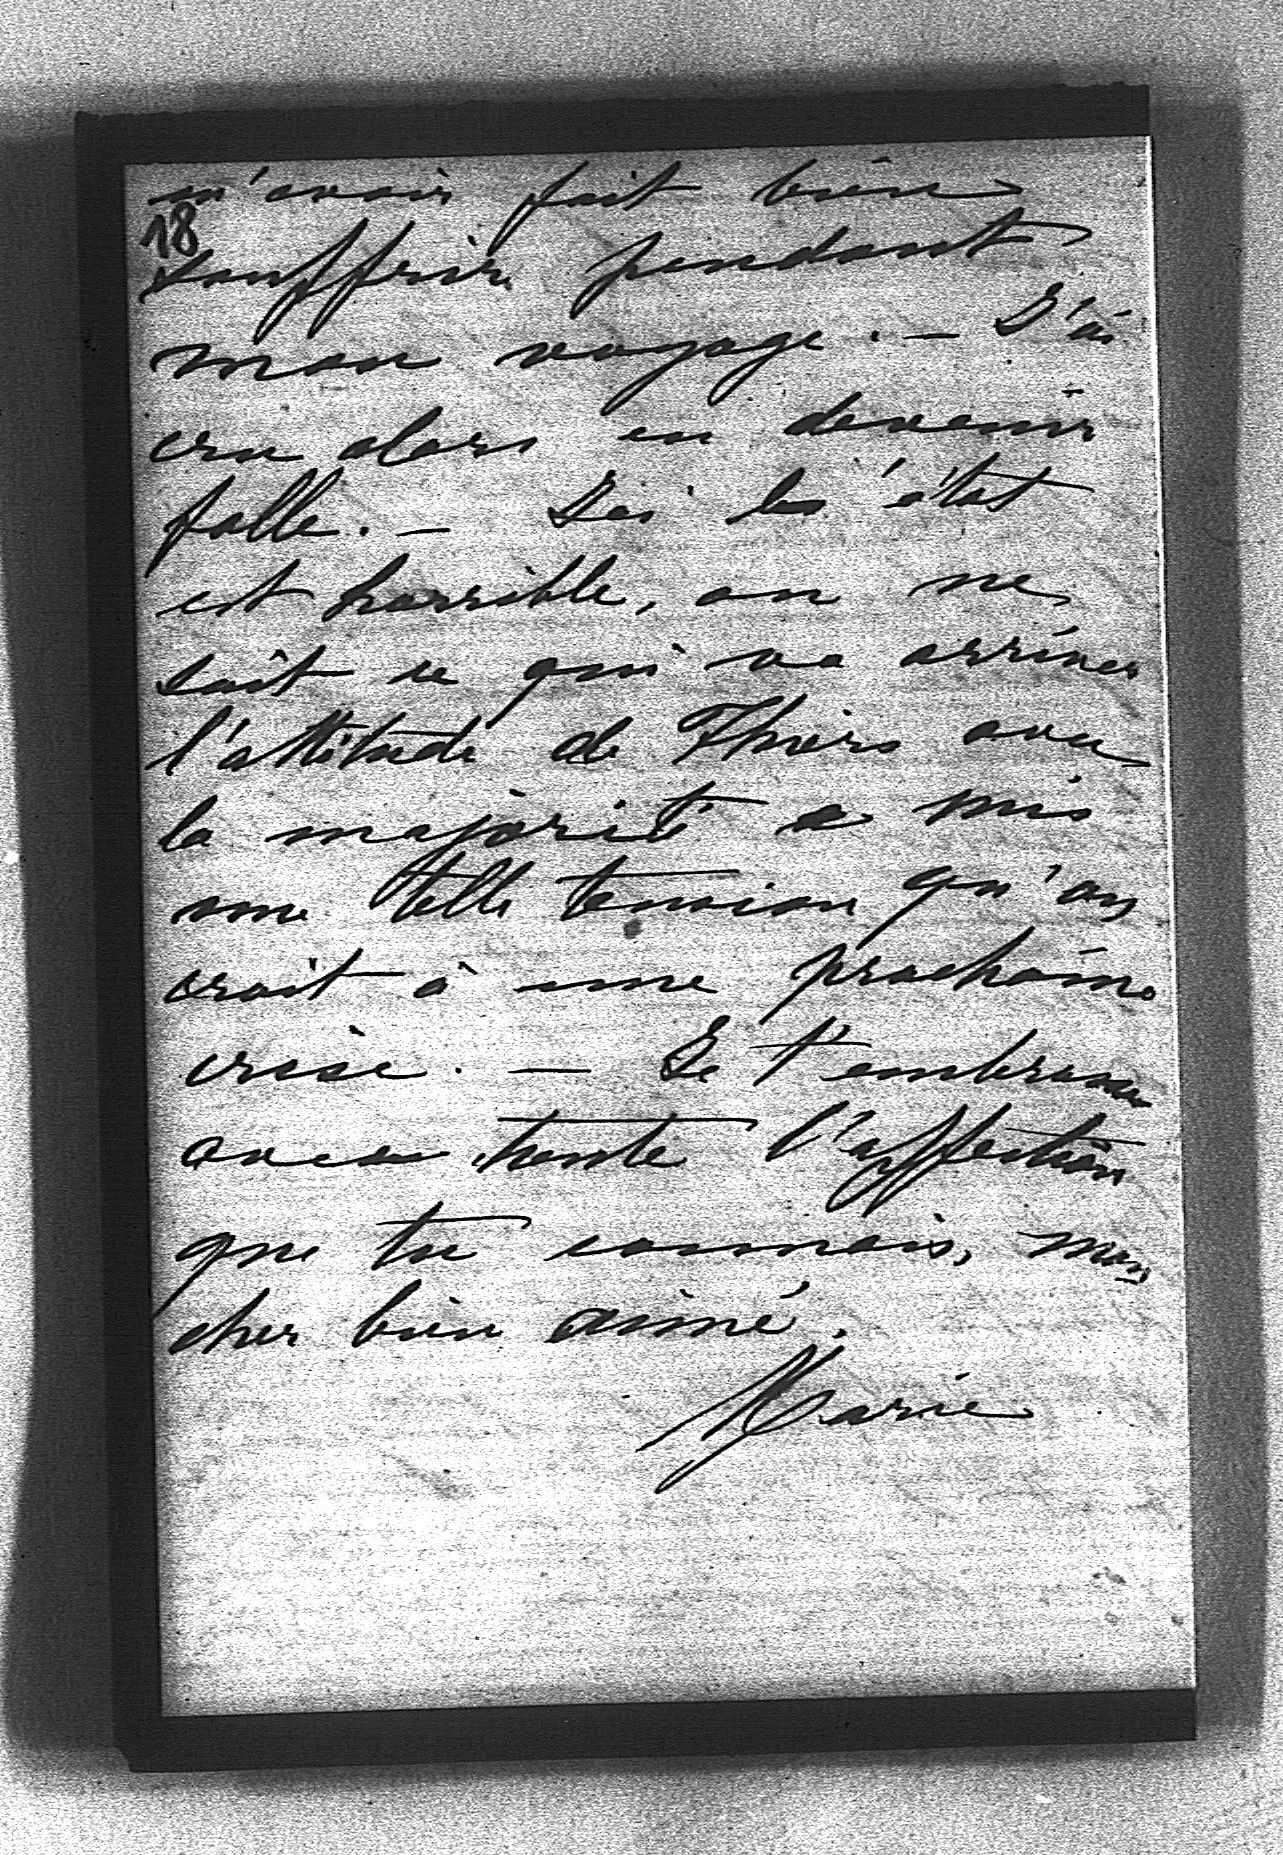 m'avoir fait bien
18
souffrir pendant
mon voyage. — J'ai
cru alors en devenir
folle. — Ici les état
est horrible, on ne
sait ce qui va arriver
l'attitude de Thiers avec
la majorité a mis
une telle tension qu'on
croit à une prochaine
crise. — Je t'embrasse
avec toute l'affection
que tu connais, mon
cher bien aimé.
Marie